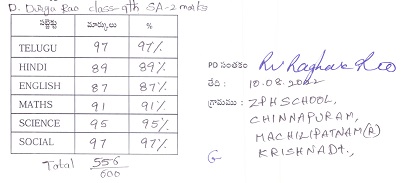 D. Durga Rao class-9th SA-2 marks
సబ్జెక్టు మార్కులు %
TELUGU 97 97%
HINDI 89 89%
ENGLISH 87 87%
MATHS 91 91%
SCIENCE 95 95%
SOCIAL 97 97%
Total 556/600
PD సంతకం Rv Raghava Rao
తేది : 10.08.2022
గ్రామము : ZPHSCHOOL,
CHINNAPURAM,
MACHILIPATNAM(R)
KRISHNADt.,
G